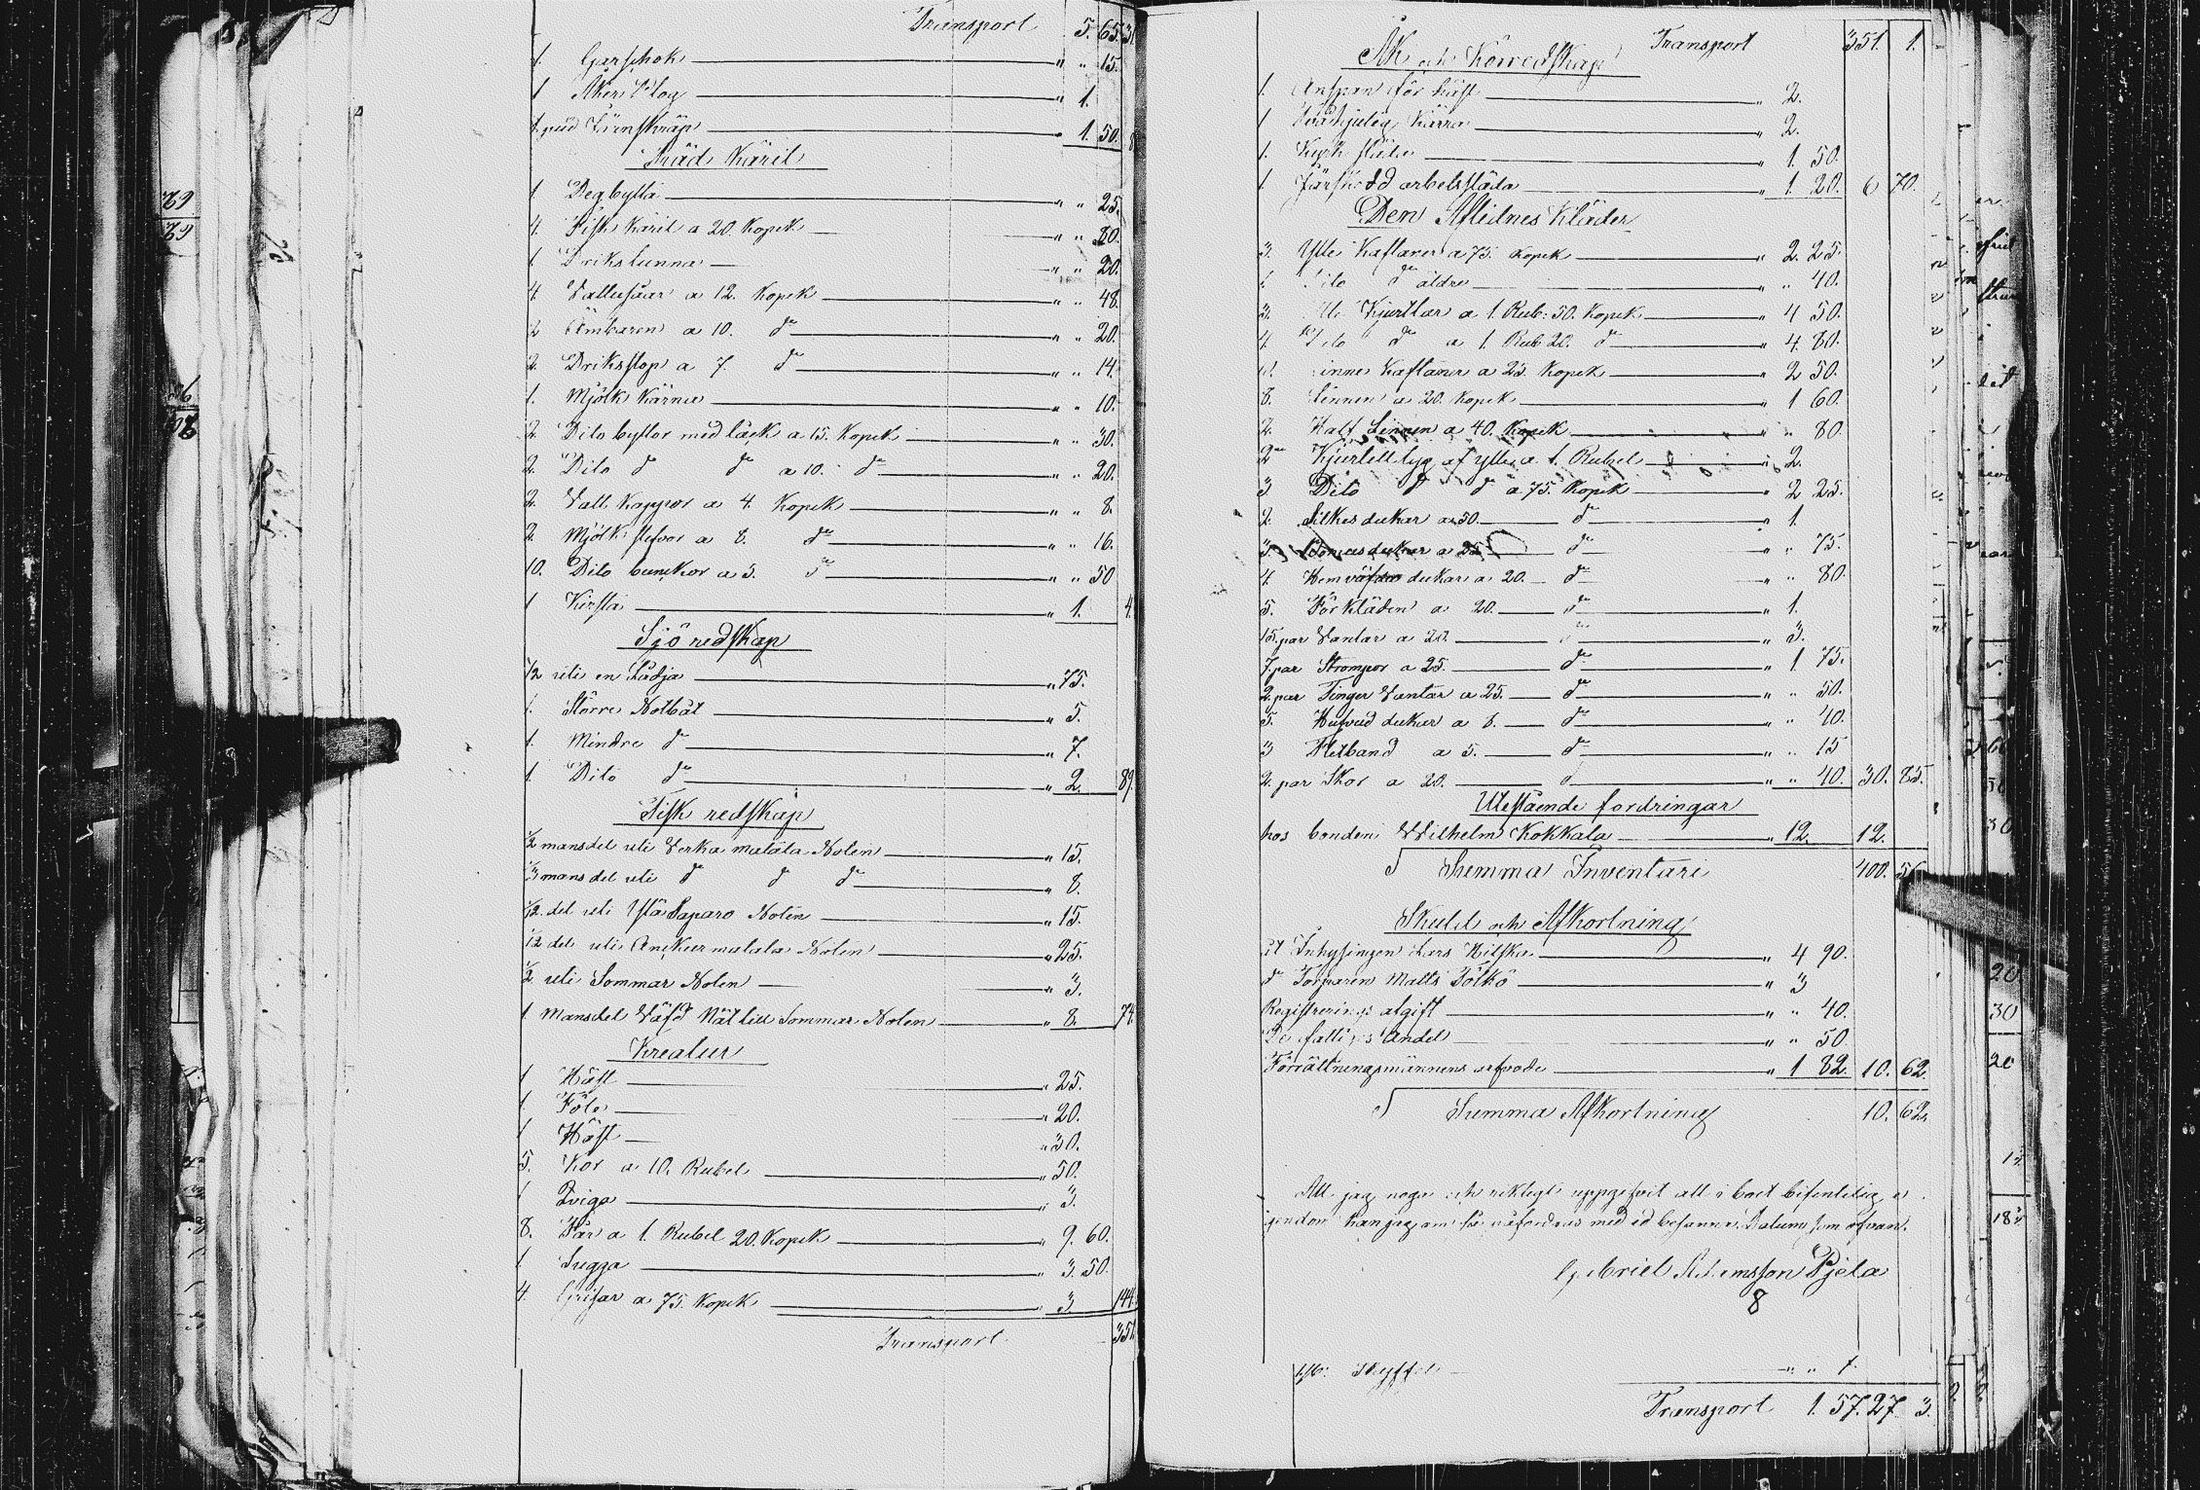 Transport 5. 65. 31
1. Garschok " " 15.
1 Åker Plog " 1.
1. pud Järnskräp " 1. 50. 8
Träd Käril
1 Degbytta " " 25.
4. Fisk Käril a 20. Kopek " " 80.
1 Drikstunna " " 20.
4 Vattusåar a 12. Kopek " " 48.
2 Ämbaren a 10. do " " 20.
2. Driksstop a 7. do " " 14.
1. Mjölk Kärna " " 10.
2. Dito byttor med läck a 15. Kopek " " 30.
2. Dito d do a 10. do " " 20.
2. Vall Kappor a 4. Kopek " " 8.
2. Mjölk stefvor a 8. do " " 16.
10. Dito bunckor a 5. do " " 50
1 Kirsta " 1. 4.
Sjö redskap
1/2 uti en Lådja " 75.
1. Större Notbåt " 5.
1. Mindre do " 7.
1. Dito do " 2. 89.
Fisk redskap
1/2 mansdel uti Verkamatala Noten " 15.
1/3 mans del uti d do do " 8.
1/2. del uti Ylä Saparo Noten " 15.
1/2 del uti Anckurmatala Noten " 25.
1/2 uti Sommar Noten " 3.
1 Mansdel Väfd Nät till Sommar Noten " 8. 74.
Kreatur
1 Häst " 25.
1. Föle " 20.
1 Häst " 30.
5. Kor a 10. Rubel " 50.
1 Qviga " 3.
8. Får a 1. Rubel 20. Kopek " 9. 60.
1 Sugga " 3. 50.
4. Grisar a 75. Kopek " 3. 144.
Transport 351.
Transport 351. 1.
Åk och Körredskap
1. Anspan för häst " 2.
1 Tvåhjulig Kärra " 2.
1. Kyrk släda " 1. 50.
1 Järnskodd arbetssläda " 1 20. 6 70.
Den Aflidnes Kläder
3. Ylle Kaftaner a 75. Kopek " 2. 25.
Dito do äldre " " 40.
Kjurtlar a 1. Rub: 50. Kopek " 4 50.
4. Dito d a 1. Rub 20. d " 4. 80.
Linne Kaftaner a 25. Kopek " 2 50.
8. Linnen a 20. Kopek " 1 60.
2. Half Linnen a 40. Kopek " " 80.
2 Kjurtell tyg af ylle a 1. Rubel " 2.
3 Dito d d a 75. Kopek " 2 25.
2. Silkes dukar a 50. do " 1.
3. Bomulsdukar a 25. do " " 75.
4. Hemväfda dukar a 20. do " " 80.
5. Förkläden a 20. do " 1.
15. par Vantar a 20. do " 3.
7. par Strumpor a 25. do " 1 75.
2. par Finger Vantar a 25. do " " 50.
5. Hufvud dukar a 8. do " " 40.
3 Fletband a 5. do " " 15
2. par Skor a 20. d " " 40. 30. 85.
Utestående fordringar
hos bonden Wilhelm Kokkala " 12. 12.
Summa Inventari 400. 56
Skuld och Afkortning
åt Inhysingen Lars Kilska " 4 90.
do Torparen Matts Tölkö " 3
Registrerings afgift " " 40.
De fattiges Andel " " 50
Förrättningsmännens arfvode " 1 82. 10. 62.
Summa Afkortning 10. 62.
Att jag noga och riktigt uppgifvit allt i boet befintelig e
gendom kan jag om så äfordras med ed besanna. Datum som ofvan.
Gabriel Adamsson Pjela
8
" " 1.
Transport 1. 57. 27 3.